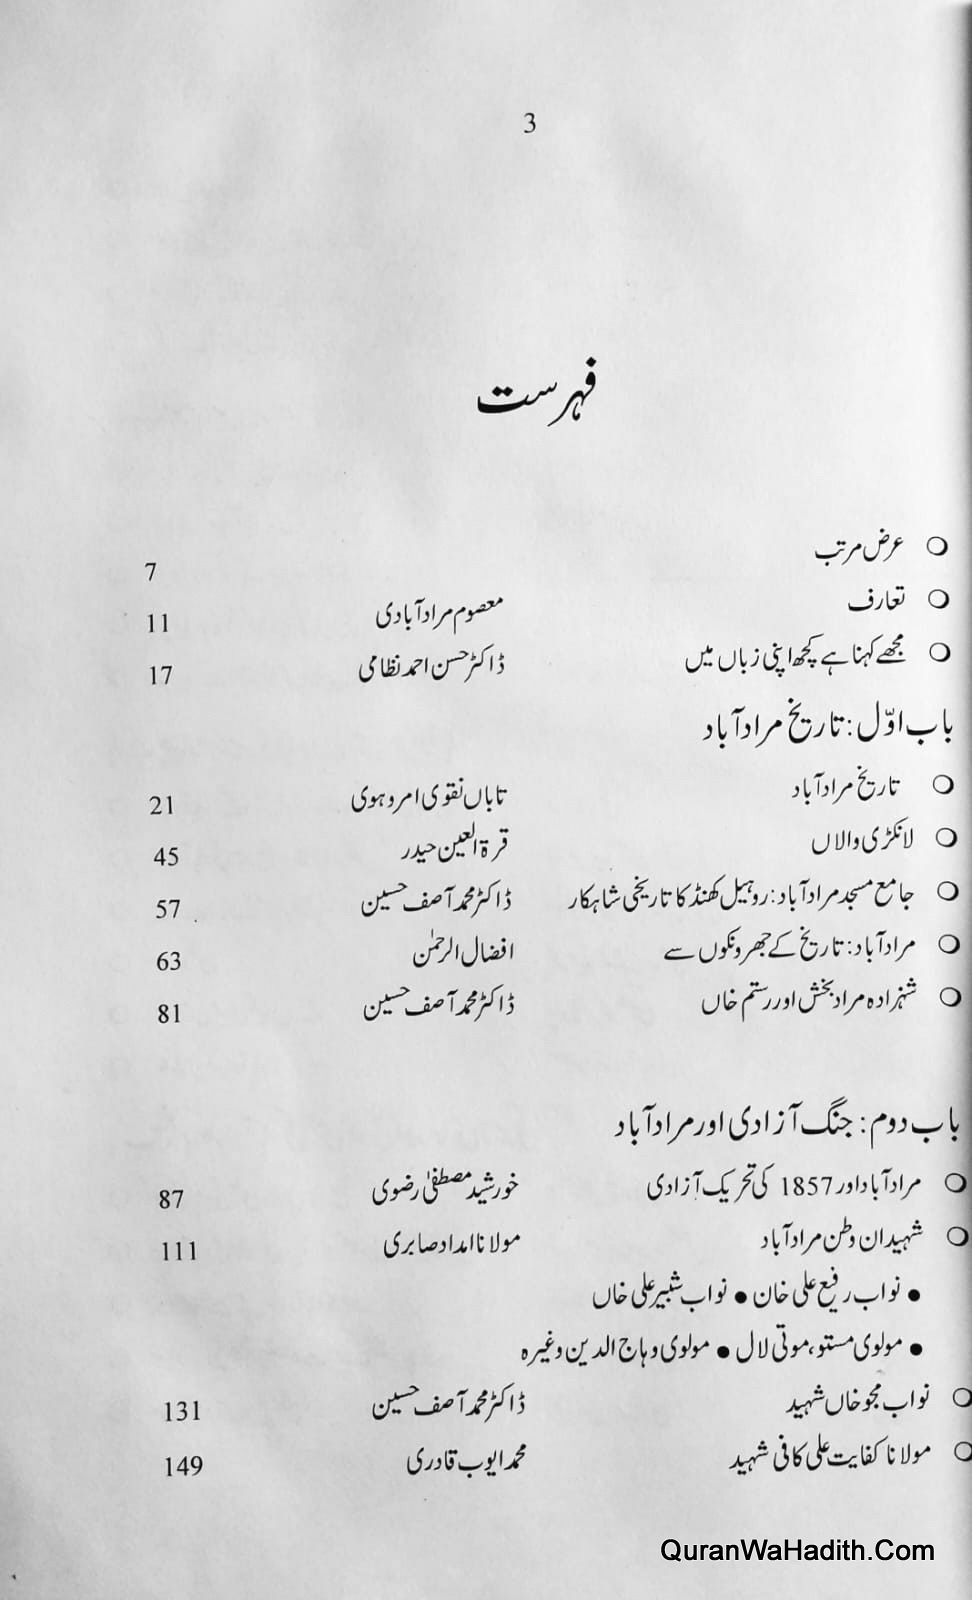 3
فہرست
○ عرض مرتب 7
○ تعارف معصوم مرادآبادی 11
○ مجھے کہنا ہے کچھ اپنی زباں میں ڈاکٹر حسن احمد نظامی 17
باب اوّل: تاریخ مرادآباد
○ تاریخ مرادآباد تاباں نقوی امروہوی 21
○ لانکڑی والاں قرۃ العین حیدر 45
○ جامع مسجد مرادآباد: روہیل کھنڈ کا تاریخی شاہکار ڈاکٹر محمد آصف حسین 57
○ مرادآباد: تاریخ کے جھرونکوں سے افضال الرحمٰن 63
○ شہزادہ مراد بخش اور رستم خاں ڈاکٹر محمد آصف حسین 81
باب دوم: جنگ آزادی اور مرادآباد
○ مرادآباد اور 1857 کی تحریک آزادی خورشید مصطفیٰ رضوی 87
○ شہیدان وطن مرادآباد مولانا امداد صابری 111
● نواب رفیع علی خان ● نواب شبیر علی خاں
● مولوی مستو، موتی لال ● مولوی وہاج الدین وغیرہ
○ نواب مجو خاں شہید ڈاکٹر محمد آصف حسین 131
○ مولانا کفایت علی کافی شہید محمد ایوب قادری 149
QuranWaHadith.Com